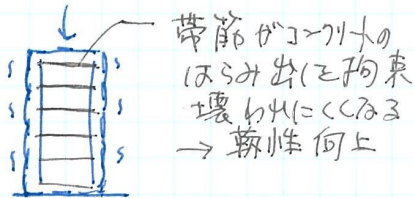 帯筋がコンクリートの
はらみ出しを拘束
壊われにくくなる
→ 靭性向上